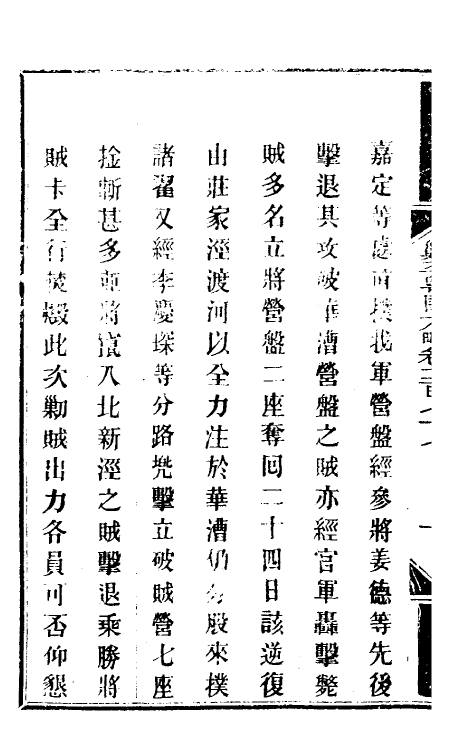 嘉定等處直撲我軍營盤經參將姜德等先後
擊退其攻破華漕營盤之賊亦經官軍轟擊斃
賊多名立將營盤二座奪回二十四日該逆復
由莊家涇渡河以全力注於華漕仍分股來撲
諸翟又經李慶琛等分路兜擊立破賊營七座
擒斬甚多並將竄入北新涇之賊擊退乘勝將
賊卡全行焚燬此次勦賊出力各員可否仰懇